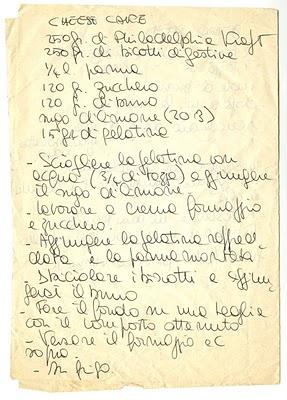 CHEESE CAKE
250 gr. di Philadelphia Kraft
250 gr. di biscotti digestive
1/4 l. panna
120 gr. zucchero
120 gr. di burro
sugo di limone (2 o 3)
15 gr di gelatina
- Sciogliere la gelatina con
acqua (3/4 di tazza) e aggiungere
il sugo di limone
- lavorare a crema formaggio
e zucchero.
- Aggiungere la gelatina raffred-
data e la panna montata
- Sbriciolare i biscotti e aggiun-
gerci il burro
- Fare il fondo su una teglia
con il composto ottenuto
- Versare il formaggio ec
sopra.
- In frigo.